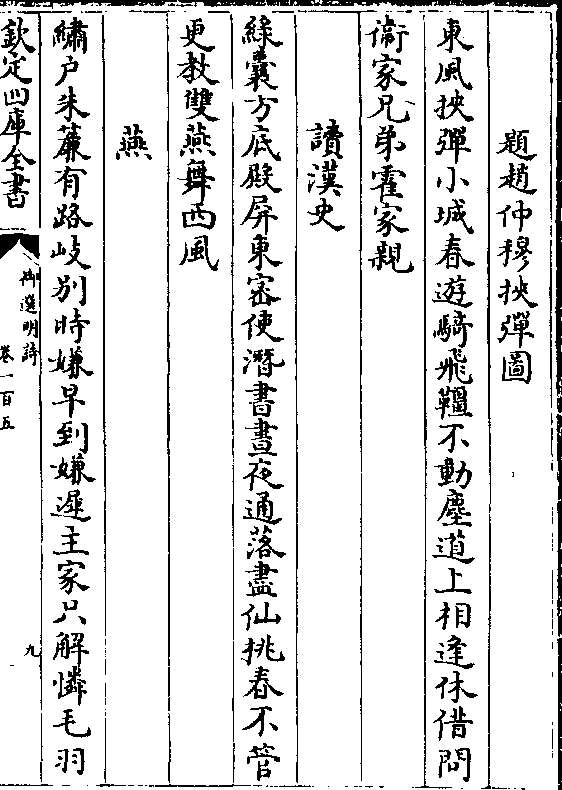 題趙仲穆挾彈圖
東風挾彈小城春遊騎飛韁不動塵道上相逢休借問
衞家兄弟霍家親
讀漢史
綠囊方底殿屏東密使潛書晝夜通落盡仙桃春不管
更教雙燕舞西風
燕
繡户朱簾有路岐別時嫌早到嫌遲主家只解憐毛羽
欽定四庫全書
御選明詩
卷一百五
九